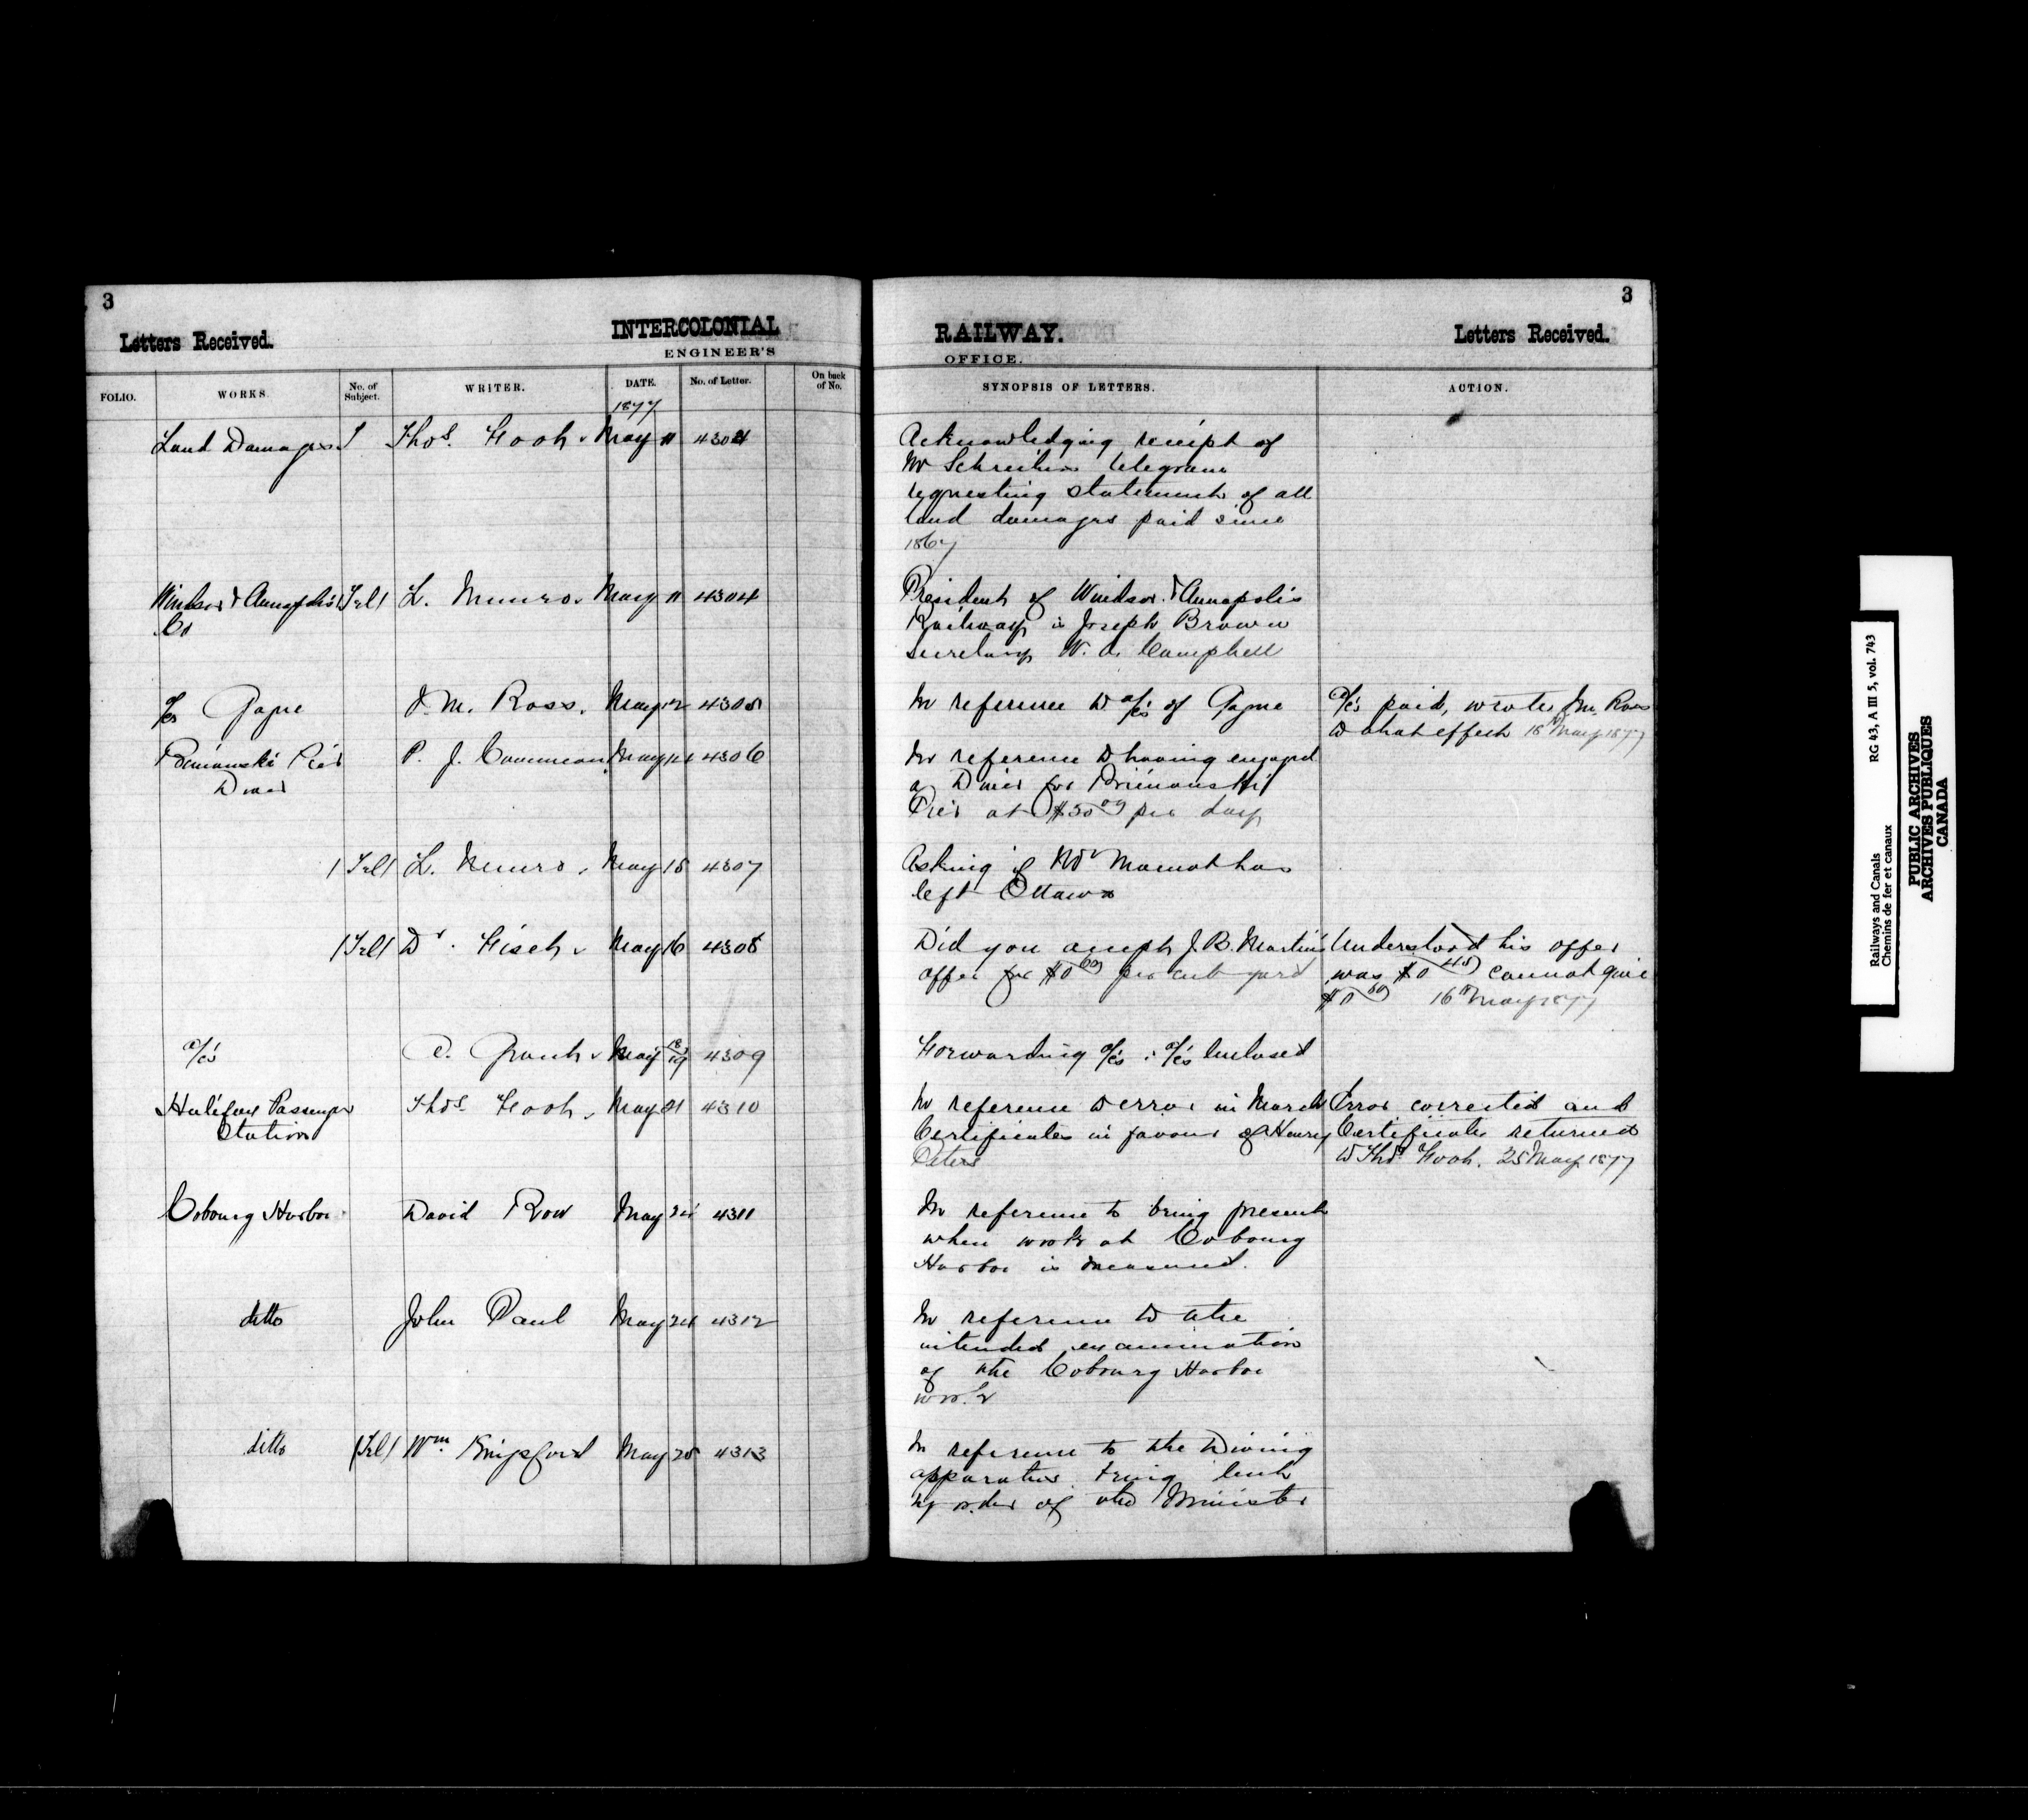 3
3
Letters Received.
INTERCOLONIAL
RAILWAY.
Letters Received.
ENGINEER'S
OFFICE.
FOLIO.
WORKS.
No. of Subject.
WRITER.
DATE.
No. of Letter.
On back of No.
SYNOPSIS OF LETTERS.
ACTION.
1877
Land Damages Thos. Foot May 11 4304
Acknowledging receipt of
Mr Schreiber telegram
requesting statement of all
land damages paid since
1867
Windsor & Annapolis (Tel) L. Munro. May 11 4304
Co
President of Windsor & Annapolis
Railway is Joseph Brown
Secretary W. A. Campbell
Gagne J. M. Ross. May 12 4305
In reference to a/cs of Gagne
a/cs paid, wrote Mr. Ross
to that effect 18th May 1877
Pier P. J. May 4306
Diver
In reference to having engaged
a Diver for
Pier at per day
(Tel) L. Munro. May 15 4307
Asking if Mr has
left Ottawa
(Tel) Dr. May 16 4308
Did you accept J. B. Martin's
offer for $0 60 per cub yard
Understood his offer
was $0 45 cannot give
$0 16th May 1877
a/cs A. Grant May 18/19 4309
Forwarding a/cs : a/cs Enclosed
Halifax Passenger Thos. Foot. May 21 4310
Station
In reference to error in March
Certificates in favour of Henry
Peters
Error corrected and
Certificate returned
to Thos Foot. 25 May 1877
Cobourg Harbor David Row May 4311
In reference to being present
when work at Cobourg
Harbor is measured.
ditto John Paul May 24 4312
In reference to the
intended examination
of the Cobourg Harbor
work
ditto (Tel) Wm Kingsford May 25 4313
In reference to the Diving
apparatus being lent
by order of the Minister
RG 43, A III 5, vol. 743
Railways and Canals
Chemins de fer et canaux
PUBLIC ARCHIVES
ARCHIVES PUBLIQUES
CANADA